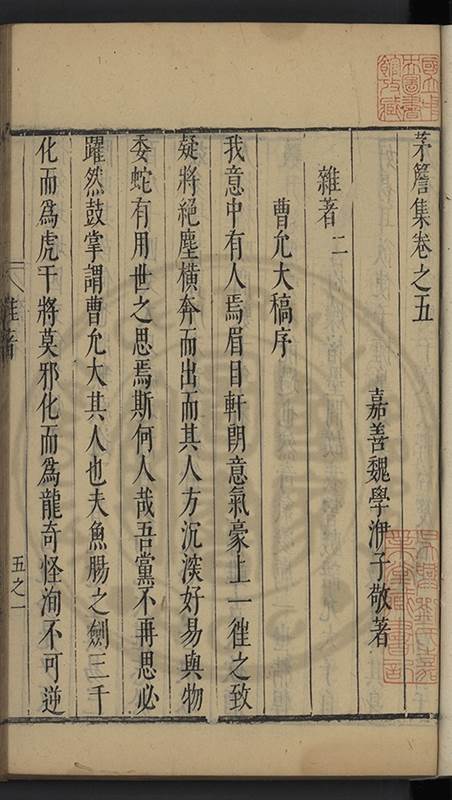 茅簷集卷之五
嘉善魏學洢子敬著
雜著二
曹允大稿序
我意中有人焉眉目軒朗意氣豪上一徃之致
疑將絕塵橫奔而出而其人方沉淡好易與物
委蛇有用世之思焉斯何人哉吾黨不再思必
躍然鼓掌謂曹允大其人也夫魚腸之劍三千
化而為虎干將莫邪化而為龍奇怪洵不可逆
雜著
五之一